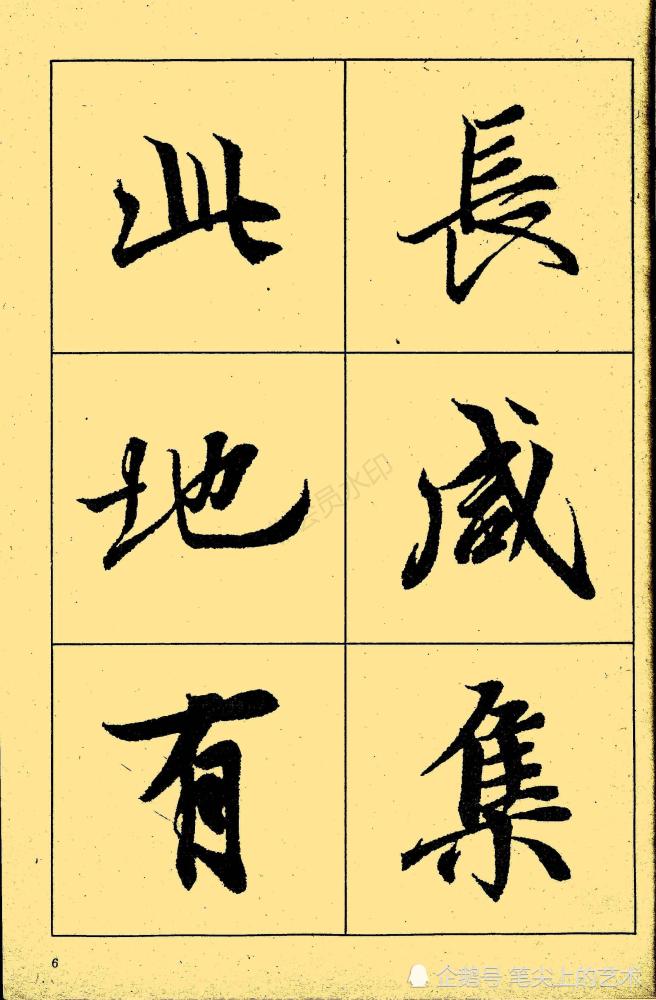 長咸集
此地有
会员水印
6
企鹅号 笔尖上的艺术